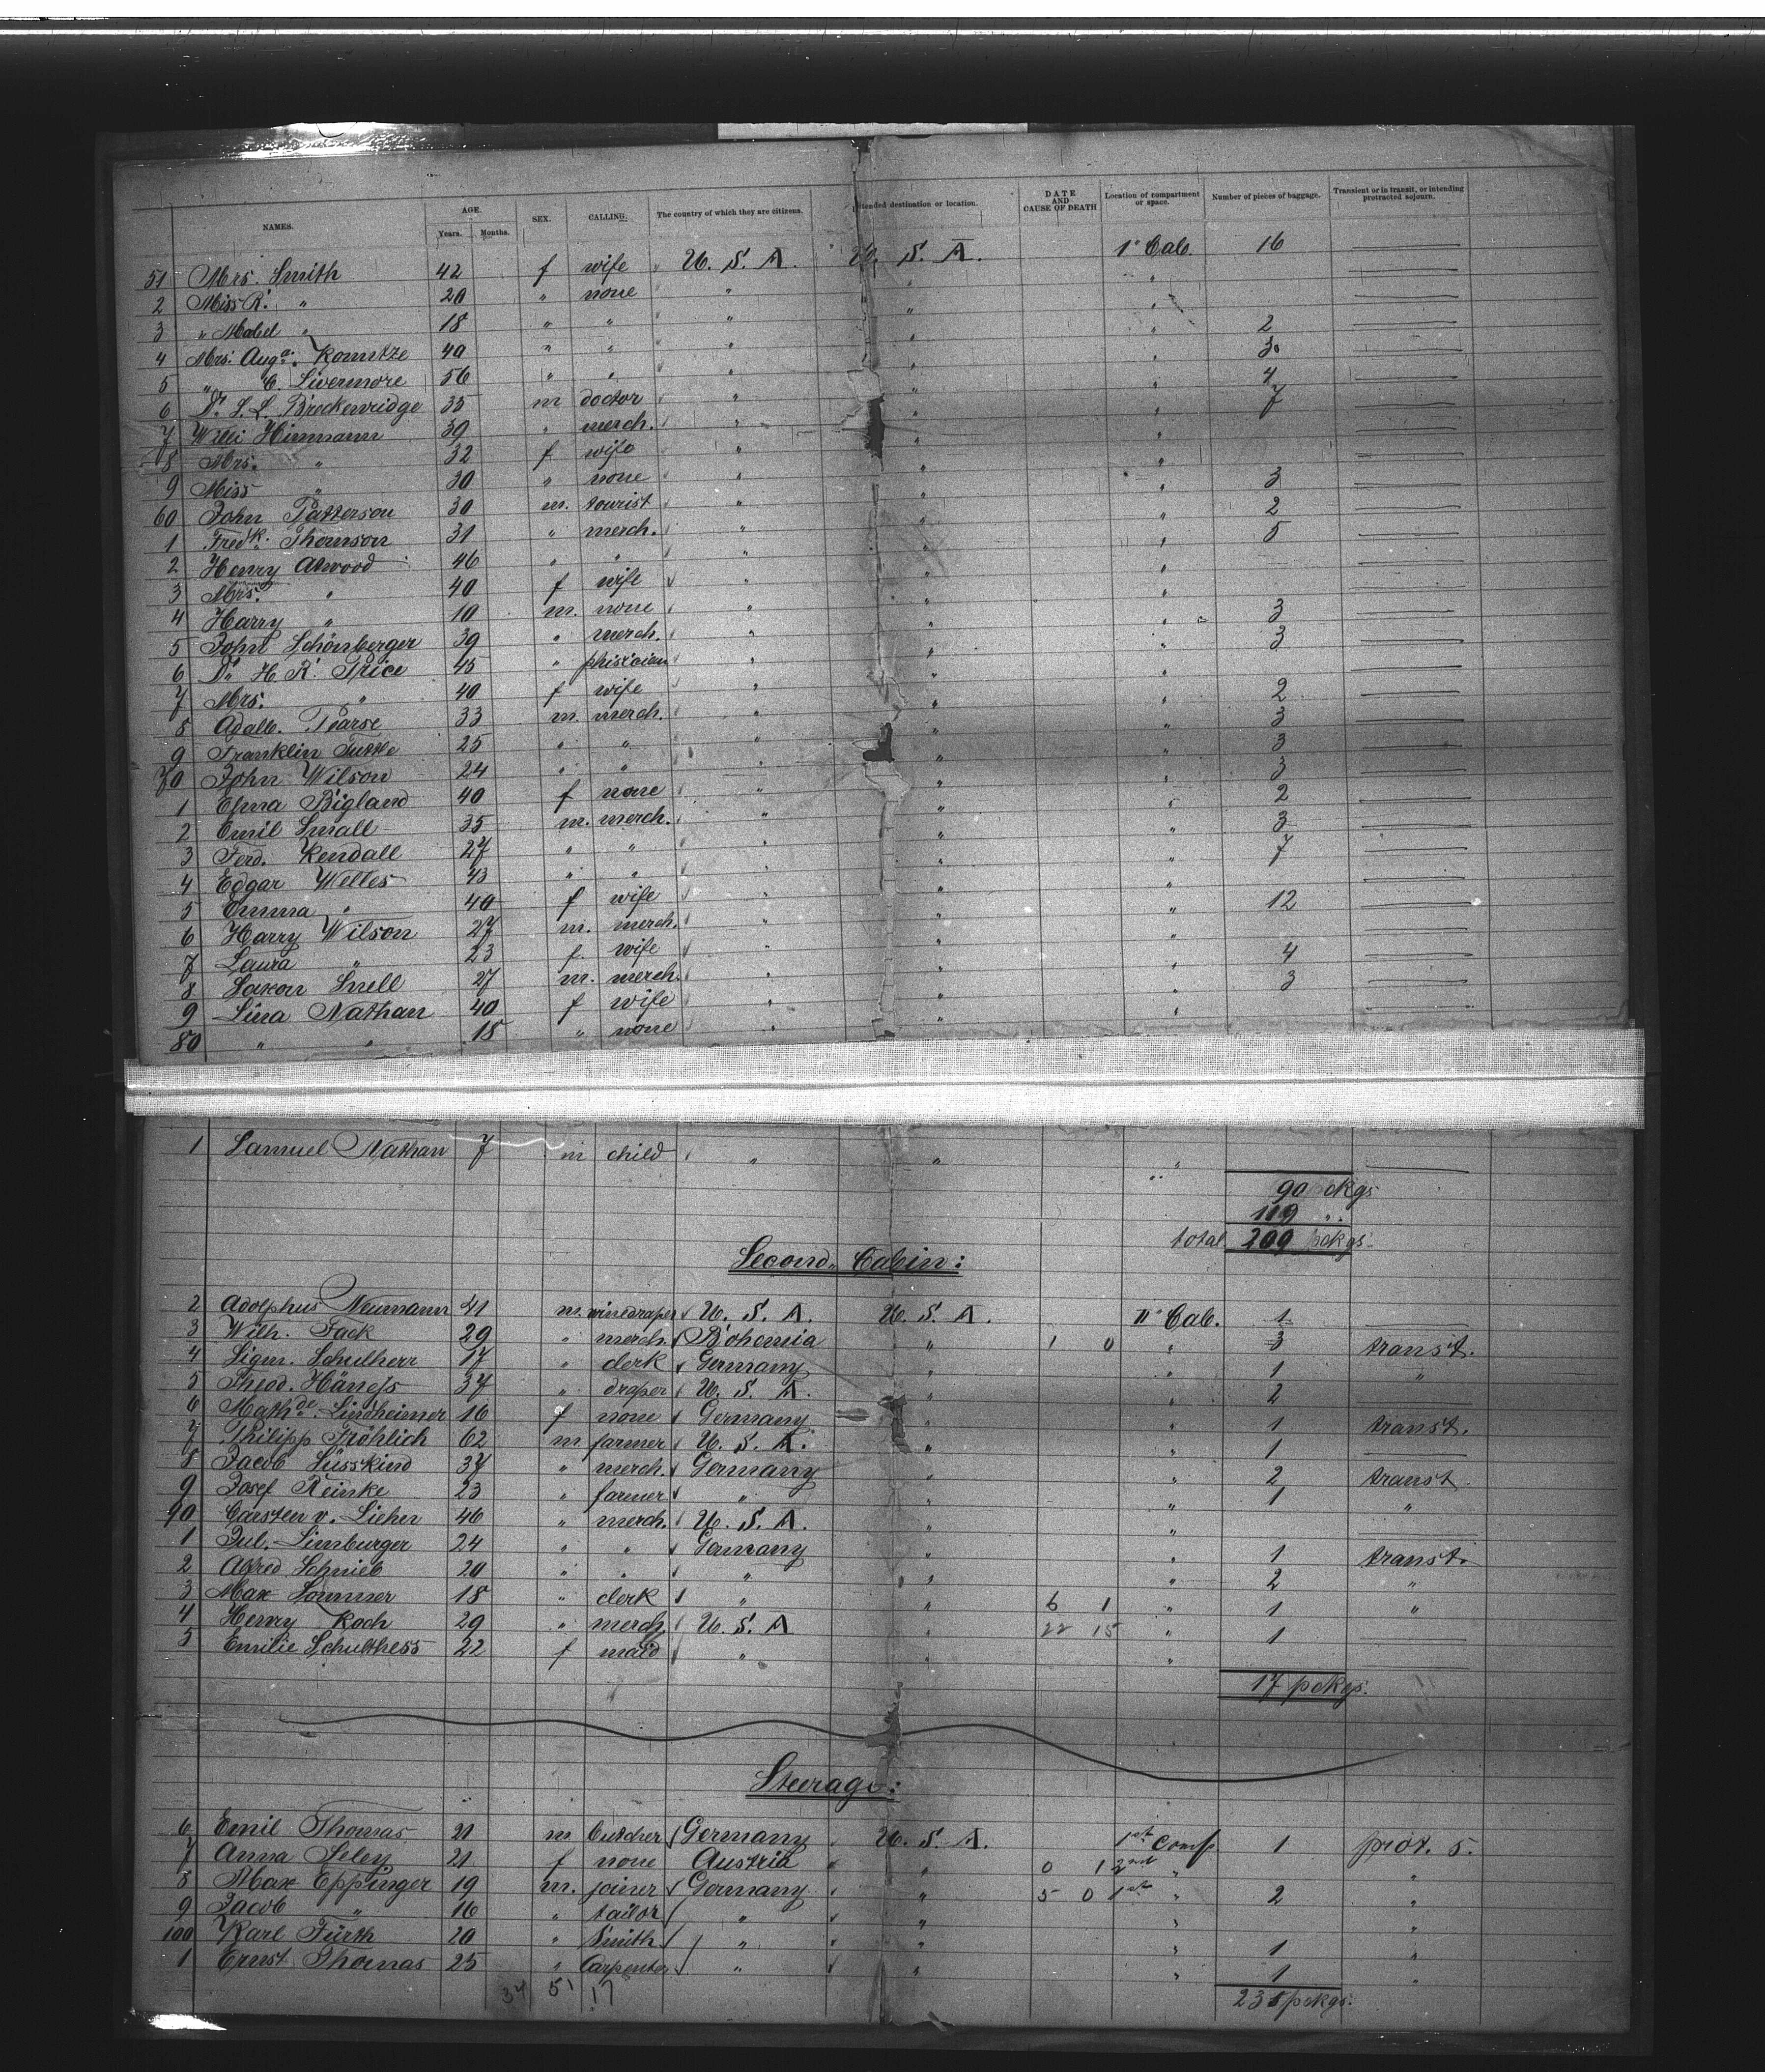 NAMES. AGE. Years. Months. SEX. CALLING. The country of which they are citizens. Intended destination or location. DATE AND CAUSE OF DEATH Location of compartment or space. Number of pieces of baggage. Transient or in transit, or intending protracted sojourn.
51 Mrs. Smith 42 f wife U. S. A. U. S. A. 1" Cab. 16
2 Miss R. " 20 " none " " "
3 " Mabel " 18 " " " " " 2
4 Mrs. Aug. Kountze 40 " " " " " 3
5 " C. Livermore 56 " " " " " 4
6 Dr. S. L. Breckenridge 35 m doctor " " " 7
7 Willi Hinmann 39 " merch. " " "
8 Mrs. " 32 f wife " " "
9 Miss " 30 " none " " " 3
60 John Patterson 30 m. tourist " " " 2
1 Fredk. Thomson 31 " merch. " " " 5
2 Henry Atwood 46 " " " " "
3 Mrs. " 40 f wife " " "
4 Harry " 10 m. none " " " 3
5 John Schönberger 39 " merch. " " " 3
6 Dr. H R. Price 45 " phisician " " "
7 Mrs. " 40 f wife " " " 2
8 Adalb. Pearse 33 m. merch. " " " 3
9 Franklin Tuttle 25 " " " " " 3
70 John Wilson 24 " " " " " 3
1 Elma Bigland 40 f none " " " 2
2 Emil Small 35 m. merch. " " " 3
3 Ferd. Kendall 27 " " " " " 7
4 Edgar Welles 43 " " " " "
5 Emma " 40 f wife " " " 12
6 Harry Wilson 27 m. merch. " " "
7 Laura " 23 f. wife " " " 4
8 Saxon Snell 27 m. merch. " " " 3
9 Lina Nathan 40 f wife " " "
80 " " 18 " none "
1 Samuel Nathan 7 m child " " "
90 pckgs
119 "
total 209 pckgs
Second Cabin:
2 Adolphus Neumann 41 m. winedraper U. S. A. U. S. A. II" Cab. 1
3 Wilh. Fack 29 " merch. Bohemia " 1 0 " 3 transt.
4 Sigm. Schulherr 17 " clerk Germany " " 1 "
5 Theod. Häness 37 " draper U. S. A. " " 2
6 Mathde. Lindheimer 16 f none Germany " " 1 transt.
7 Philipp Fröhlich 62 m farmer U. S. A. " " 1
8 Jacob Süsskind 37 " merch. Germany " " 2 transt
9 Josef Reinke 23 " farmer " " " 1 "
90 Carsten v. Liehn 46 " merch. U. S. A. " "
1 Jul. Limburger 24 " " Germany " " 1 transt.
2 Alfred Schnieb 20 " " " " " 2 "
3 Max Sommer 18 " clerk " " 6 1 " 1 "
4 Henry Koch 29 " merch. U. S. A " 22 15 " 1
5 Emilie Schulthess 22 f maid " " "
17 pckgs.
Steerage:
6 Emil Thomas 21 m butcher Germany U. S. A. 1st Comp. 1 prot. S.
7 Anna Seley 21 f none Austria " 0 1 2nd " "
8 Max Eppinger 19 m. joiner Germany " 5 0 1st " 2 "
9 Jacob " 16 " tailor " " " "
100 Karl Fürth 20 " Smith " " " 1 "
1 Ernst Thomas 25 " Carpenter " " " 1 "
34 51 17
231 pckgs.